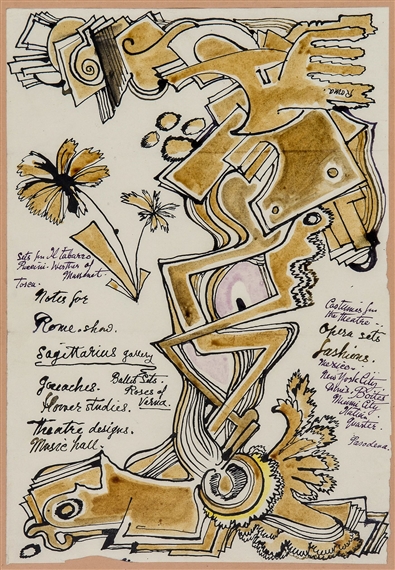 Sets for Il Tabarro
Puccini - Werther of
Massenet
Tosca.
Notes for
Rome. show.
Sagittarius gallery
Gouaches.
Ballet Sets.
Roses of
Flower studies.
Theatre designs.
Music hall.
Costumes for
the theatre
Opera sets
fashions.
Mexico.
New York City
Miami City
Quarter.
Pasadena.